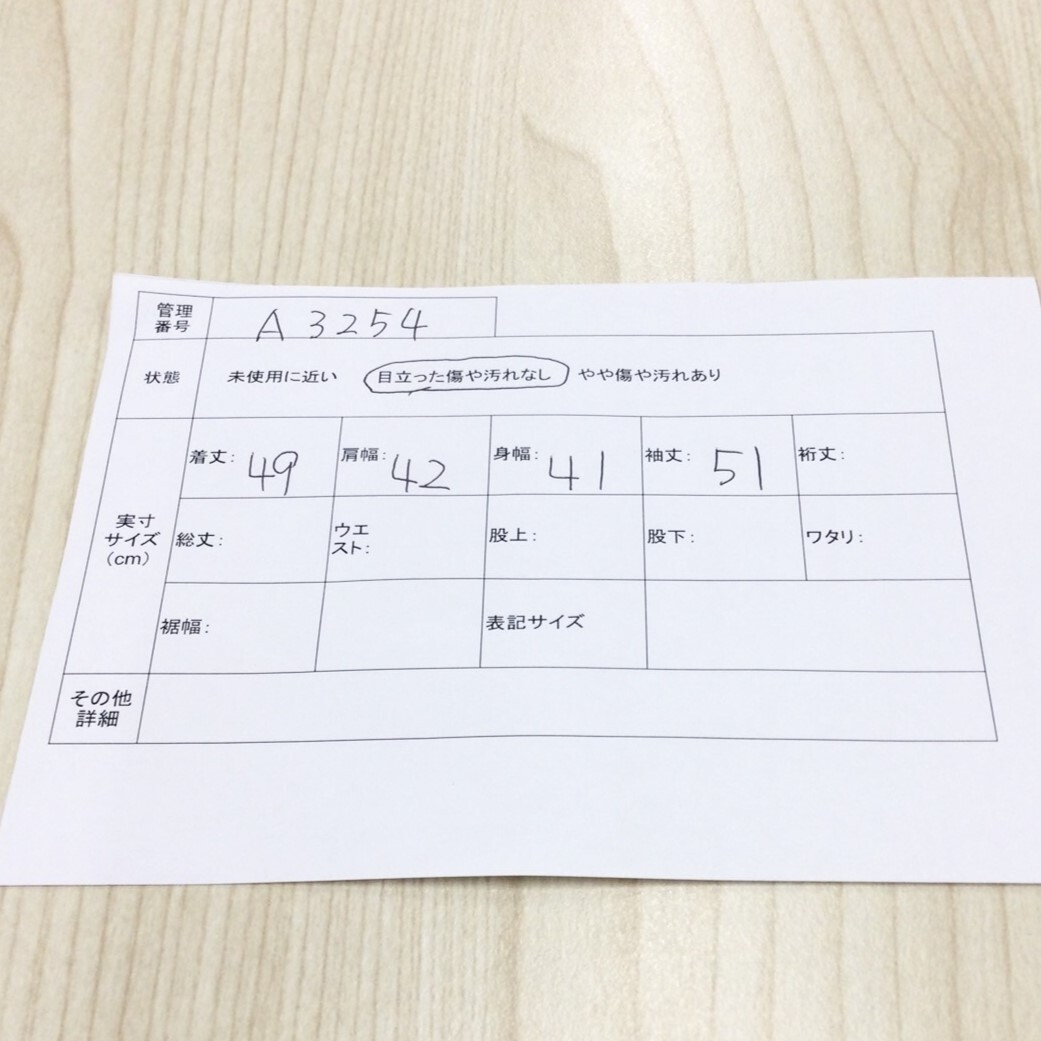 管理
番号 A3254
状態 未使用に近い 目立った傷や汚れなし やや傷や汚れあり
実寸
サイズ
(cm)
着丈: 49 肩幅: 42 身幅: 41 袖丈: 51 裄丈:
総丈: ウエ
スト: 股上: 股下: ワタリ:
裾幅: 表記サイズ
その他
詳細